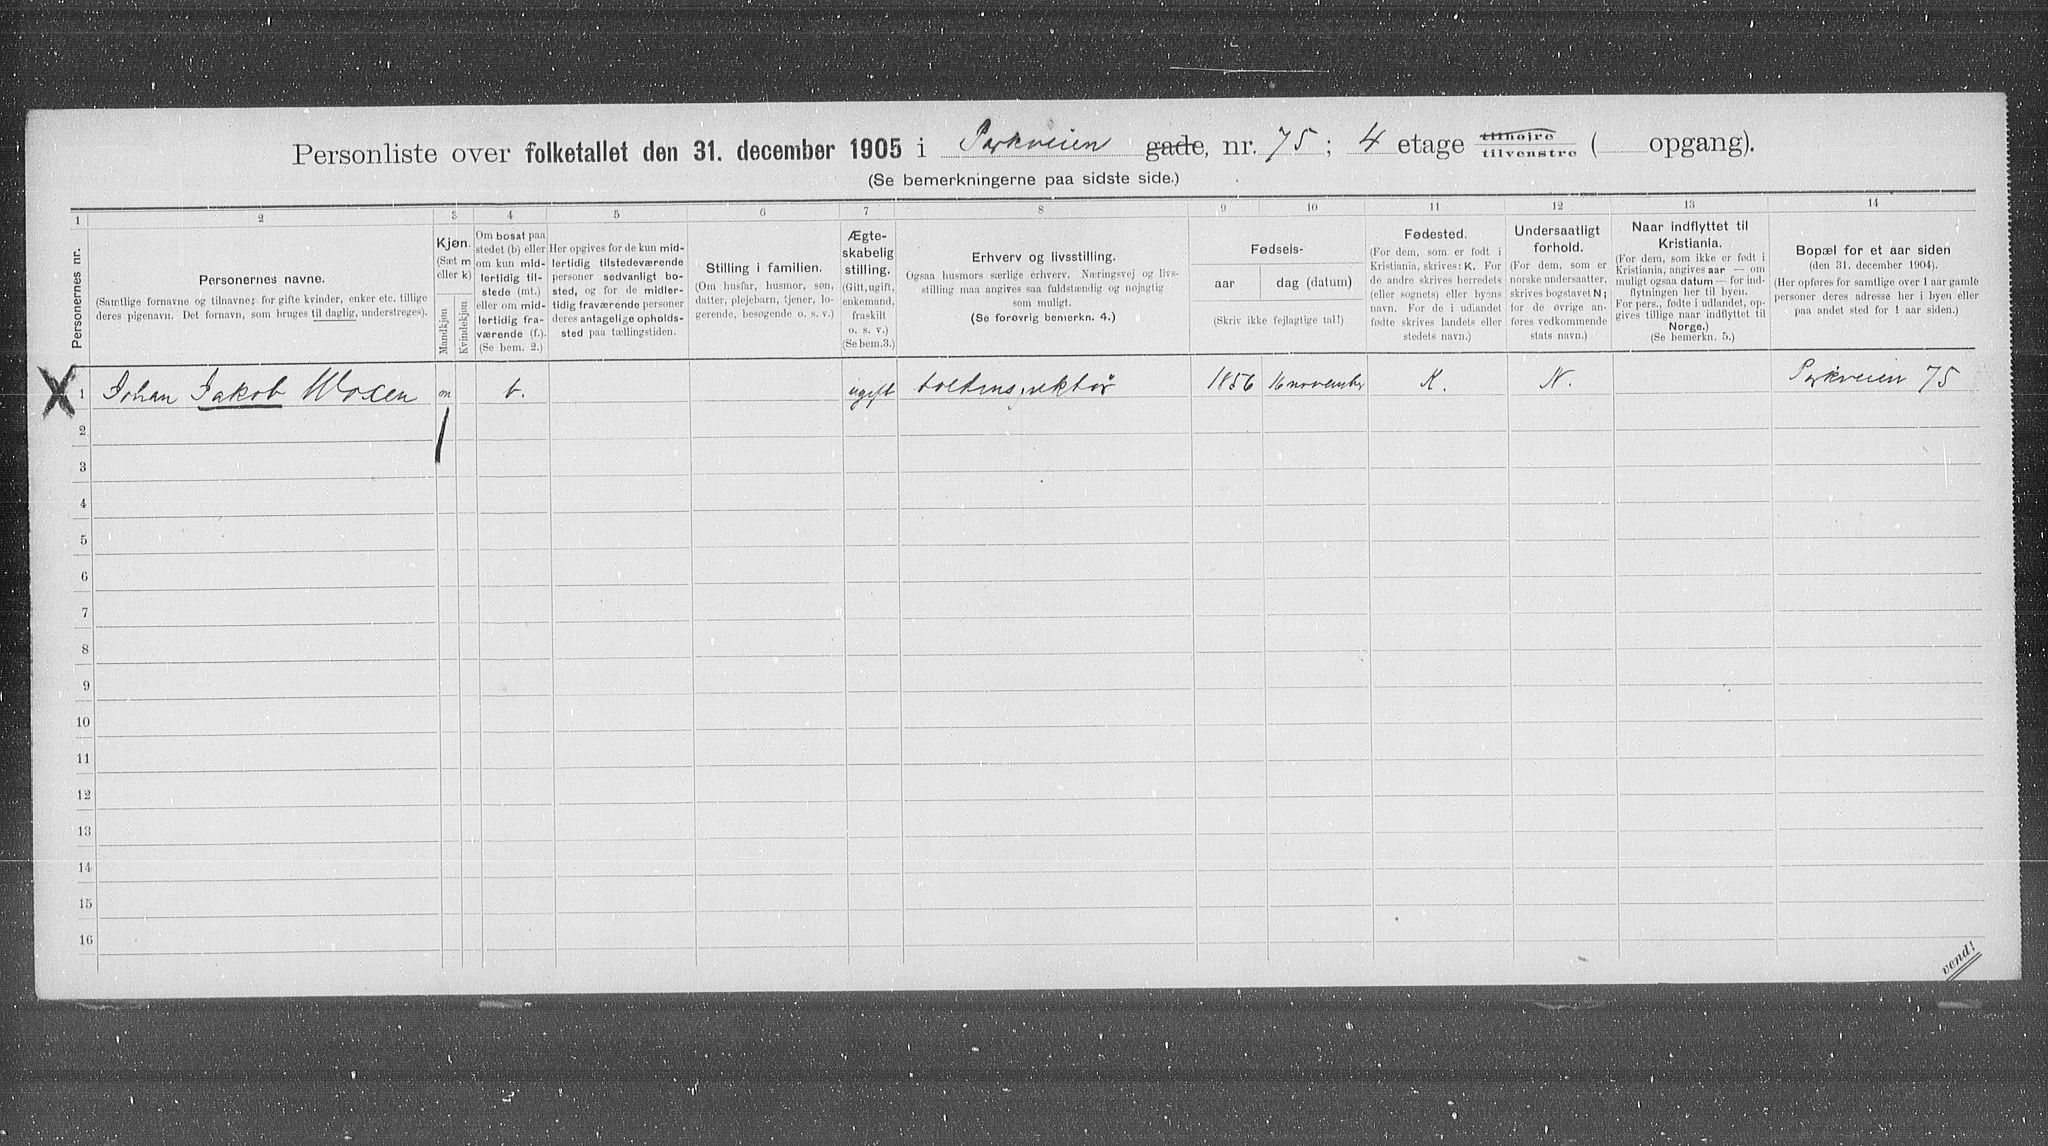 Personliste over folketallet den 31. december 1905 i Parkveien gade, nr. 75; 4 etage tilhøjre tilvenstre ( opgang).
(Se bemerkningerne paa sidste side.)
1 2 3 4 5 6 7 8 9 10 11 12 13 14
Personernes nr.
Personernes navne.
(Samtlige fornavne og tilnavne; for gifte kvinder, enker etc. tillige
deres pigenavn. Det fornavn, som bruges til daglig, understreges).
Kjøn.
(Sæt m
eller k)
Mandkjøn
Kvindekjøn
Om bosat paa
stedet (b) eller
om kun mid-
lertidig til-
stede (mt.)
eller om mid-
lertidig fra-
værende (f.).
(Se bem. 2.)
Her opgives for de kun mid-
lertidig tilstedeværende
personer sedvanligt bo-
sted, og for de midler-
tidig fraværende personer
deres antagelige opholds-
sted paa tællingstiden.
Stilling i familien.
(Om husfar, husmor, søn,
datter, plejebarn, tjener, lo-
gerende, besøgende o. s. v.)
Ægte-
skabelig
stilling.
(Gift, ugift,
enkemand,
fraskilt
o. s. v.)
(Se bem. 3.)
Erhverv og livsstilling.
Ogsaa husmors særlige erhverv. Næringsvej og livs-
stilling maa angives saa fuldstændig og nøjagtig
som muligt.
(Se forøvrig bemerkn. 4.)
Fødsels-
aar
dag (datum)
(Skriv ikke fejlagtige tal!)
Fødested.
(For dem, som er født i
Kristiania, skrives: K. For
de andre skrives herredets
(eller sognets) eller byens
navn. For de i udlandet
fødte skrives landets eller
stedets navn.)
Undersaatligt
forhold.
(For dem, som er
norske undersaatter,
skrives bogstavet N;
for de øvrige an-
føres vedkommende
stats navn.)
Naar indflyttet til
Kristiania.
(For dem, som ikke er født i
Kristiania, angives aar — om
muligt ogsaa datum — for ind-
flytningen her til byen.
For pers., fødte i udlandet, op-
gives tillige naar indflyttet til
Norge.)
(Se bemerkn. 5.)
Bopæl for et aar siden
(den 31. december 1904).
(Her opføres for samtlige over 1 aar gamle
personer deres adresse her i byen eller
paa andet sted for 1 aar siden.)
X 1 Johan Jakob Woxen m b. ugift toldinspektør 1856 16 november K. N. Parkveien 75
2
3
4
5
6
7
8
9
10
11
12
13
14
15
16
vend!